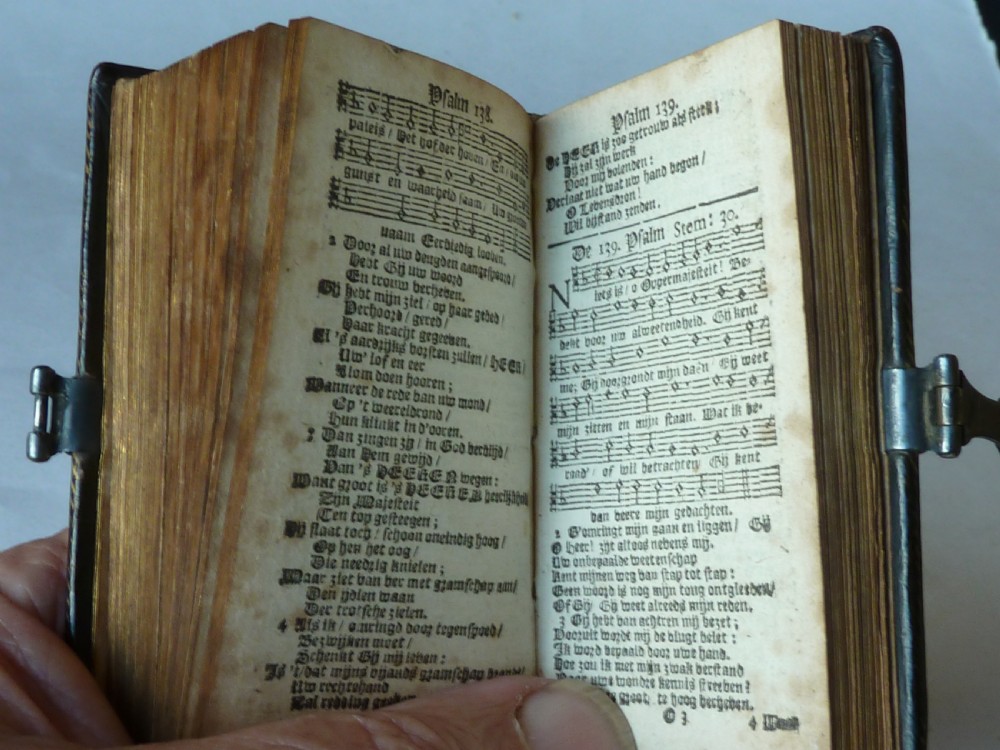 Psalm 138.
paleis / het hof der goden / En / uw
gunst en waarheid saam / Uw
naam Eerbiedig looven.
2 Door al uw deugden aangespoord /
Hebt Gij uw woord
En trouw verheven.
Gij hebt mijn ziel / op haar gebed /
Verhoord / gered /
Haar kracht gegeeven.
Al 's aardrijks vorsten zullen / HEER /
Uw' lof en eer
Alom doen hooren;
Wanneer de rede van uw mond /
Op 't weereldrond /
Hun klinkt in d'ooren.
3 Dan zingen zy / in God verblijd /
Aan Hem gewijd /
Van 's HEEREN wegen:
Want groot is 's HEEREN heerlijkheid
Zijn Majesteit
Ten top gesteegen;
Hij slaat toch / schoon oneindig hoog /
Op hen het oog /
Die needrig knielen;
Maar ziet van ver met gramschap aan /
Den ijdlen waan
Der trotsche zielen.
4 Als ik / omringd door tegenspoed /
Bezwijken moet /
Schenkt Gij mij leven:
Is 't / dat mijns vijands gramschap brandt /
Uw rechtehand
Zal redding
Psalm 139.
De HEER is zoo getrouw als sterk;
Hij zal zijn werk
Voor mij volenden:
Verlaat niet wat uw hand begon /
O Levensbron!
Wil bijstand zenden.
De 139. Psalm Stem: 30.
Niets is / o Oppermajesteit! Be-
dekt voor uw alweetendheid. Gij kent
me; Gij doorgrondt mijn daên Gij weet
mijn zitten en mijn staan. Wat ik be-
raad / of wil betrachten Gij kent
van veere mijn gedachten.
2 G'omringt mijn gaan en liggen / Gij
O Heer! zyt altoos nevens mij.
Uw onbepaalde weetenschap
Kent mijnen weg van stap tot stap:
Geen woord is nog mijn tong ontgleeden /
Of Gij / Gij weet alreeds mijn reden.
3 Gij hebt van achtren mij bezet;
Vooruit wordt mij de vlugt belet:
Ik word bepaald door uwe hand.
Hoe zou ik met mijn zwak verstand
Naar uwe wondre kennis streeven?
groot / te hoog verheven.
O 3 4 Waar